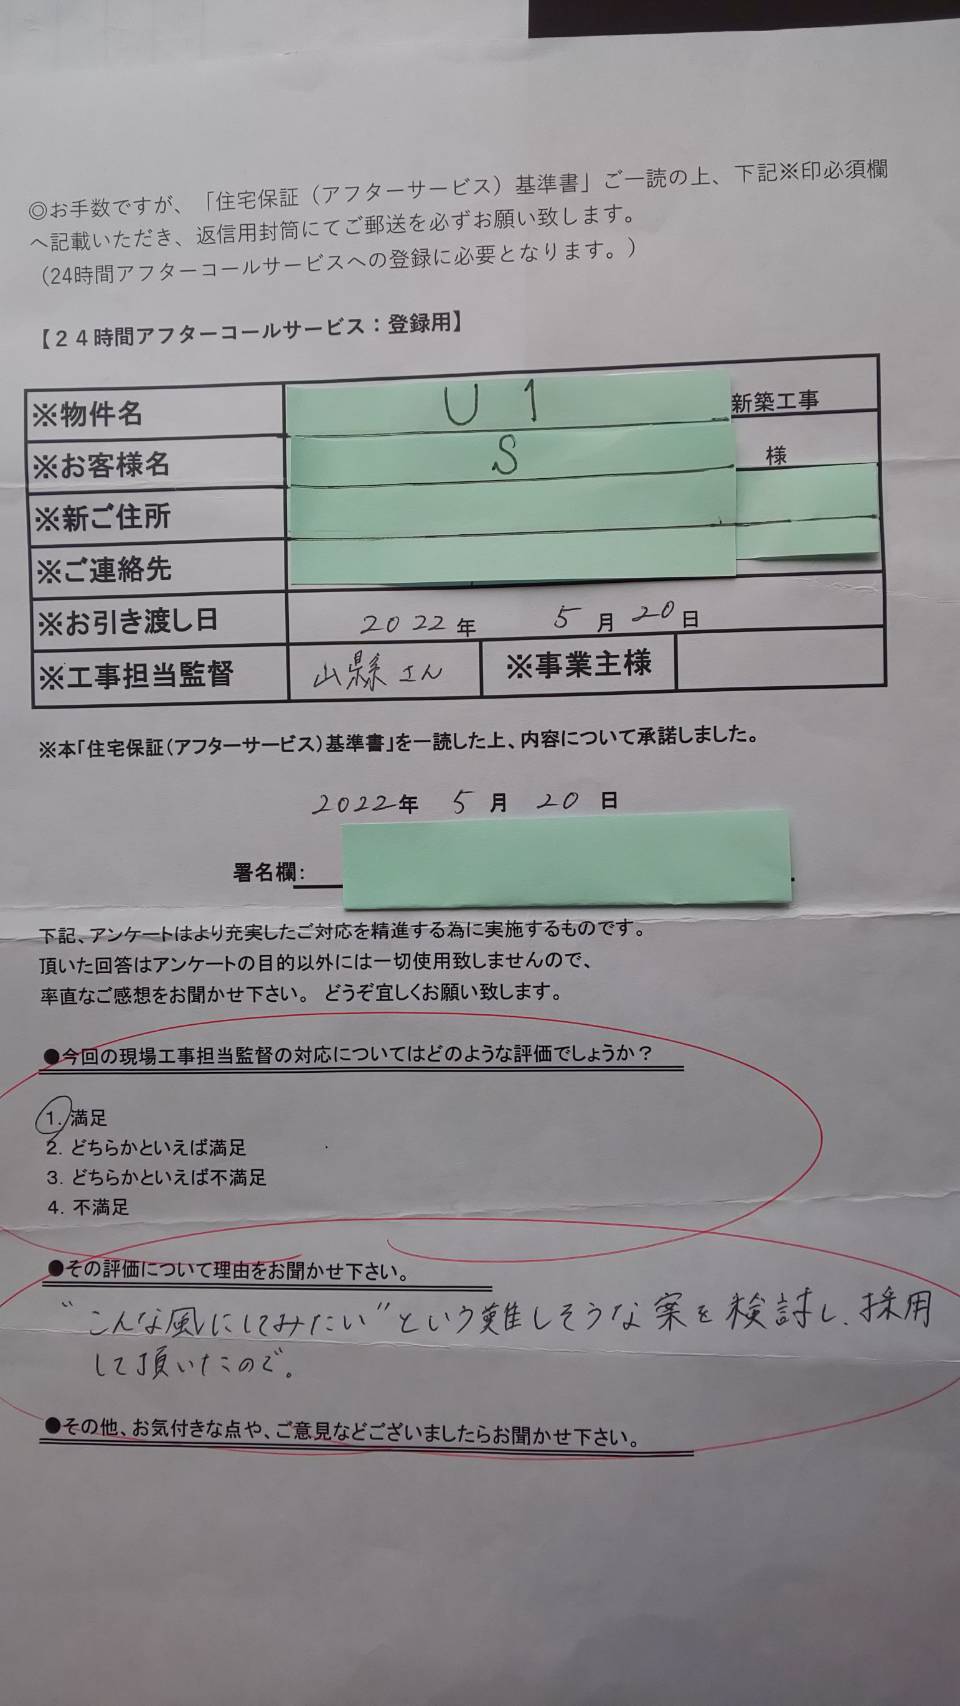 ◎お手数ですが、「住宅保証（アフターサービス）基準書」ご一読の上、下記※印必須欄
へ記載いただき、返信用封筒にてご郵送を必ずお願い致します。
（24時間アフターコールサービスへの登録に必要となります。）
【２４時間アフターコールサービス：登録用】
※物件名 U 1 新築工事
※お客様名 S 様
※新ご住所
※ご連絡先
※お引き渡し日 2022年 5月20日
※工事担当監督 山縣さん ※事業主様
※本「住宅保証（アフターサービス）基準書」を一読した上、内容について承諾しました。
2022年 5月 20日
署名欄：
下記、アンケートはより充実したご対応を精進する為に実施するものです。
頂いた回答はアンケートの目的以外には一切使用致しませんので、
率直なご感想をお聞かせ下さい。 どうぞ宜しくお願い致します。
●今回の現場工事担当監督の対応についてはどのような評価でしょうか？
1. 満足
2. どちらかといえば満足
3. どちらかといえば不満足
4. 不満足
●その評価について理由をお聞かせ下さい。
"こんな風にしてみたい"という難しそうな案を検討し、採用
して頂いたので。
●その他、お気付きな点や、ご意見などございましたらお聞かせ下さい。